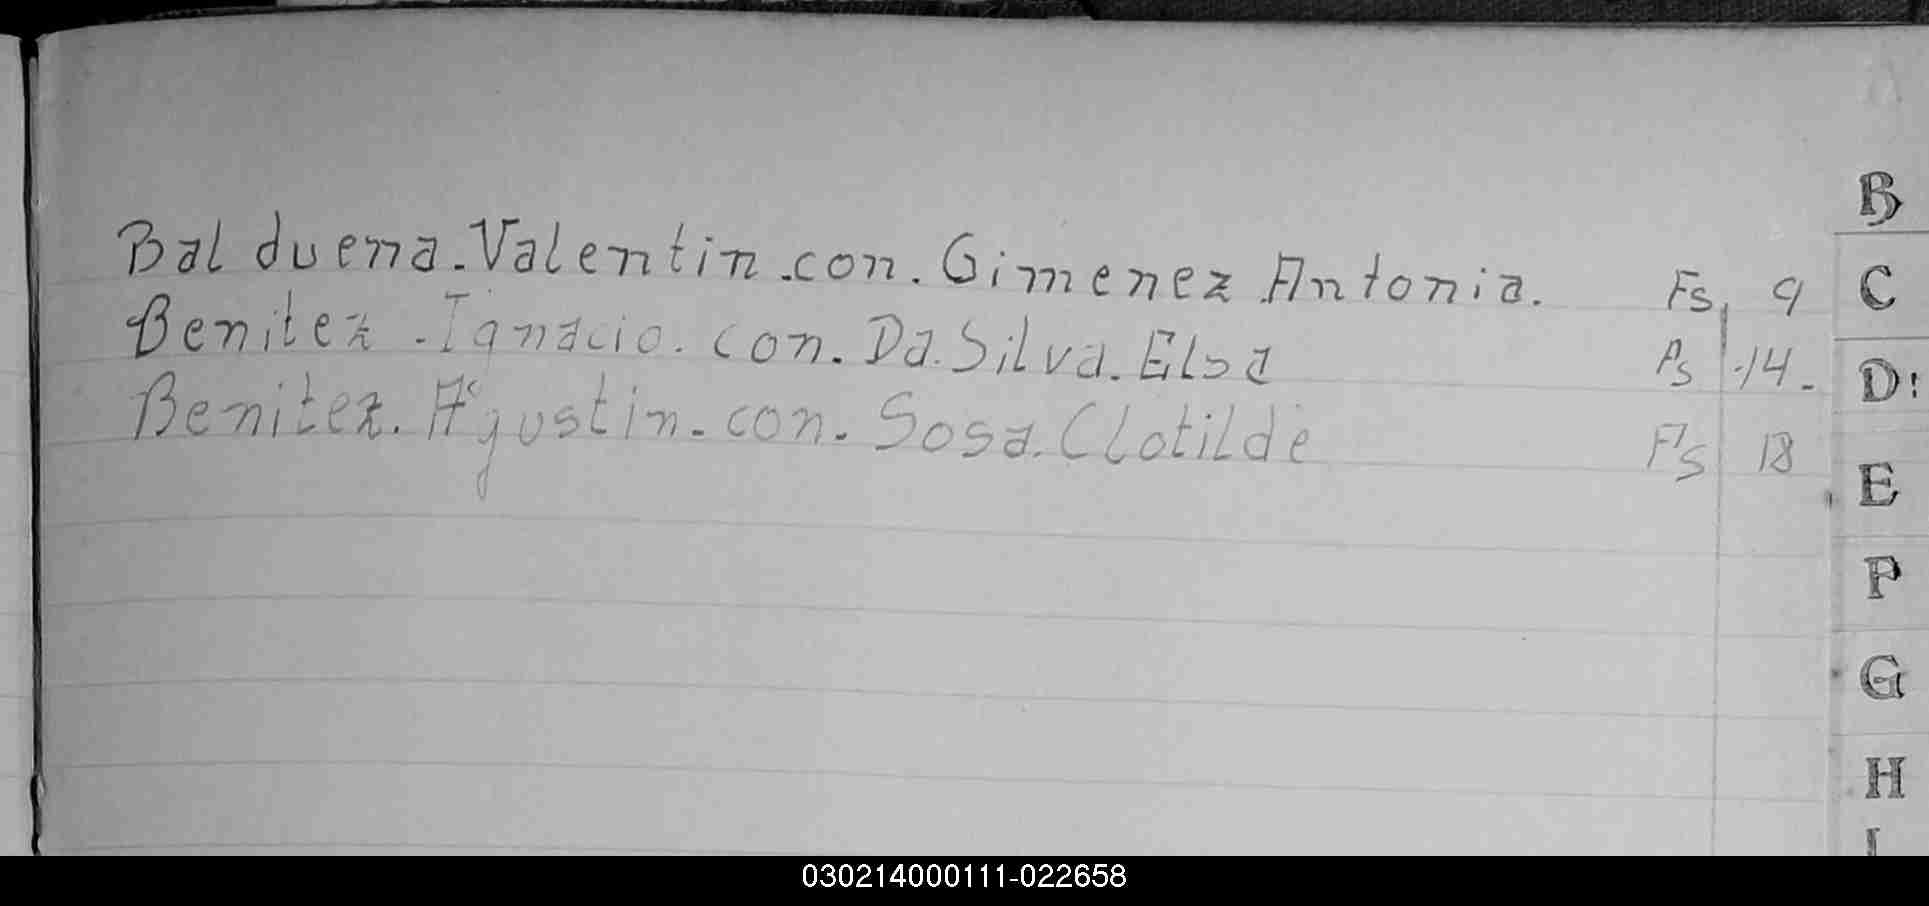 Balduena. Valentin. con. Gimenez Antonia. Fs, 9
Benitez. Ignacio. con. Da. Silva. Elsa Fs 14.
Benitez. Agustin. con. Sosa. Clotilde Fs 18
B
C
D
E
F
G
H
I
030214000111-022658